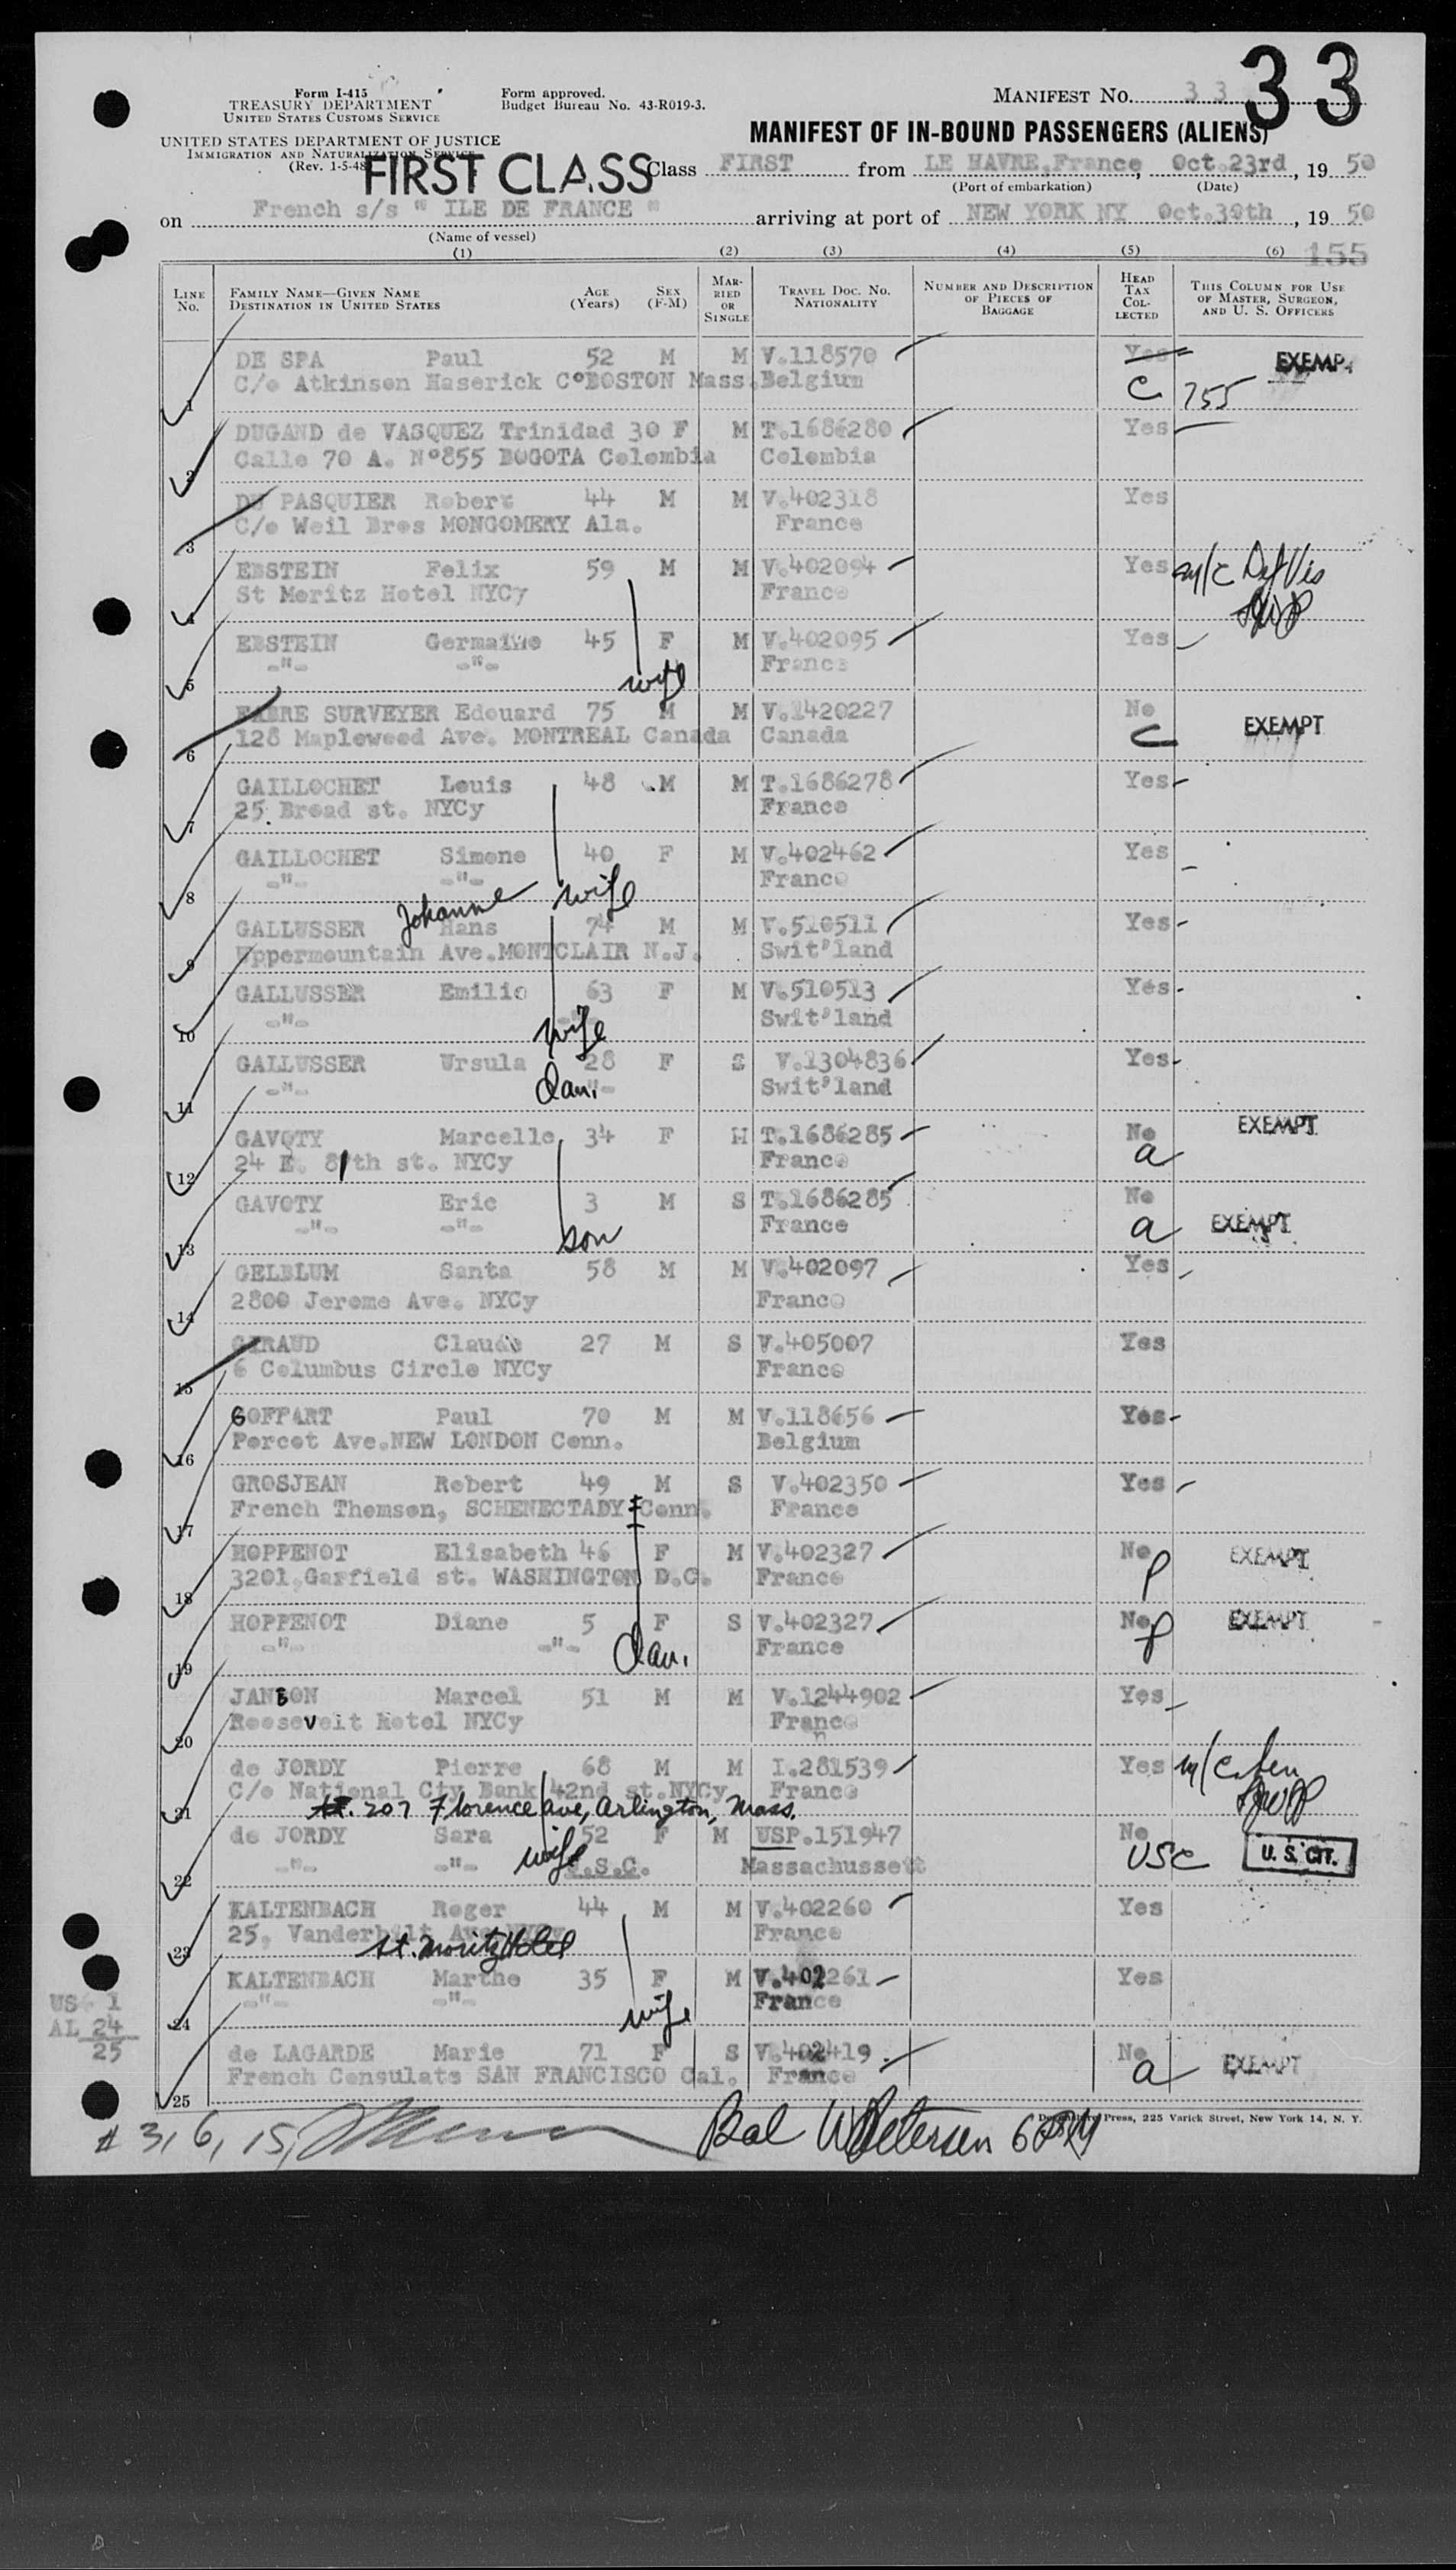 33
Form I-415
TREASURY DEPARTMENT
UNITED STATES CUSTOMS SERVICE
UNITED STATES DEPARTMENT OF JUSTICE
IMMIGRATION AND NATURALIZATION SERVICE
(Rev. 1-5-48)
Form approved.
Budget Bureau No. 43-R019-3.
MANIFEST NO. 33
MANIFEST OF IN-BOUND PASSENGERS (ALIENS)
FIRST CLASS
Class FIRST from LE HAVRE,France, Oct.23rd, 19 50
(Port of embarkation) (Date)
on French s/s " ILE DE FRANCE " arriving at port of NEW YORK NY Oct.30th, 19 50
(Name of vessel)
155
(1) (2) (3) (4) (5) (6)
LINE NO. FAMILY NAME—GIVEN NAME DESTINATION IN UNITED STATES AGE (YEARS) SEX (F-M) MARRIED OR SINGLE TRAVEL DOC. NO. NATIONALITY NUMBER AND DESCRIPTION OF PIECES OF BAGGAGE HEAD TAX COLLECTED THIS COLUMN FOR USE OF MASTER, SURGEON, AND U. S. OFFICERS
DE SPA Paul 52 M M V.118570 Yes EXEMP.
1 C/o Atkinson Haserick C°BOSTON Mass. Belgium C 755
DUGAND de VASQUEZ Trinidad 30 F M T.1686280 Yes
2 Calle 70 A. N°855 BOGOTA Colombia Colombia
DU PASQUIER Robert 44 M M V.402318 Yes
3 C/o Weil Bros MONGOMERY Ala. France
EBSTEIN Felix 59 M M V.402094 Yes m/c Def Vis
4 St Moritz Hotel NYCy France
EBSTEIN Germaine 45 F M V.402095 Yes
5 -"- -"- wife France
FABRE SURVEYER Edouard 75 M M V.1420227 No EXEMPT
6 128 Maplewood Ave. MONTREAL Canada Canada C
GAILLOCHET Louis 48 M M T.1686278 Yes
7 25 Broad st. NYCy France
GAILLOCHET Simone 40 F M V.402462 Yes
8 -"- -"- wife France
Johanne
GALLUSSER Hans 74 M M V.510511 Yes
9 Uppermountain Ave.MONTCLAIR N.J. Swit'land
GALLUSSER Emilie 63 F M V.510513 Yes
10 -"- -"- wife Swit'land
GALLUSSER Ursula 28 F S V.1304836 Yes
11 -"- -"- dau. Swit'land
GAVOTY Marcelle 34 F M T.1686285 No EXEMPT
12 24 E. 81th st. NYCy France a
GAVOTY Eric 3 M S T.1686285 No
13 -"- -"- son France a EXEMPT
GELBLUM Santa 58 M M V.402097 Yes
14 2800 Jerome Ave. NYCy France
GIRAUD Claude 27 M S V.405007 Yes
15 6 Columbus Circle NYCy France
GOFFART Paul 70 M M V.118656 Yes
16 Percot Ave.NEW LONDON Conn. Belgium
GROSJEAN Robert 49 M S V.402350 Yes
17 French Thomson, SCHENECTADY Conn. France
HOPPENOT Elisabeth 46 F M V.402327 No EXEMPT
18 3201,Garfield st. WASHINGTON D.C. France P
HOPPENOT Diane 5 F S V.402327 No EXEMPT
19 -"- -"- dau. France P
JANSON Marcel 51 M M V.1244902 Yes
20 Roosevelt Hotel NYCy France
de JORDY Pierre 68 M M I.281539 Yes
21 C/o National Cty Bank 42nd st.NYCy France
207 Florence Ave, Arlington, Mass.
de JORDY Sara 52 F M USP.151947 No
22 -"- -"- wife U.S.C. Massachussett USC U. S. CIT.
KALTENBACH Roger 44 M M V.402260 Yes
23 25, Vanderbilt Ave NYCy France
St. Moritz Hotel
KALTENBACH Marthe 35 F M V.402261 Yes
24 -"- -"- wife France
US 1
AL 24
25
de LAGARDE Marie 71 F S V.402419 No
25 French Consulate SAN FRANCISCO Cal. France a EXEMPT
Press, 225 Varick Street, New York 14, N. Y.
# 3, 6, 15, Bal W Petersen